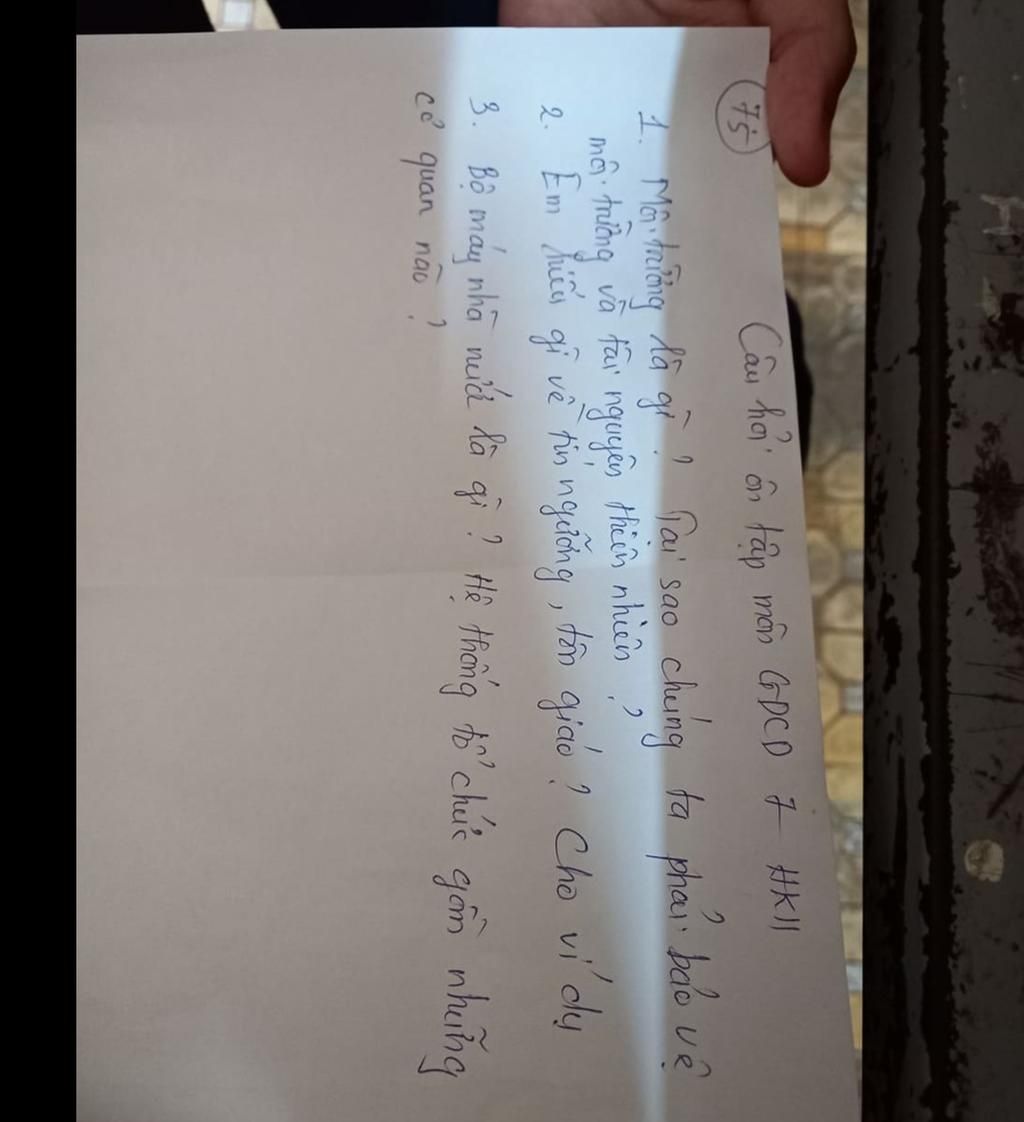 75
Câu hỏi ôn tập môn GDCD 7 - HKII
1. Môi trường là gì? Tại sao chúng ta phải bảo vệ
môi trường và tài nguyên thiên nhiên?
2. Em hiểu gì về tín ngưỡng, tôn giáo? Cho ví dụ
3. Bộ máy nhà nước là gì? Hệ thống tổ chức gồm những
cơ quan nào?